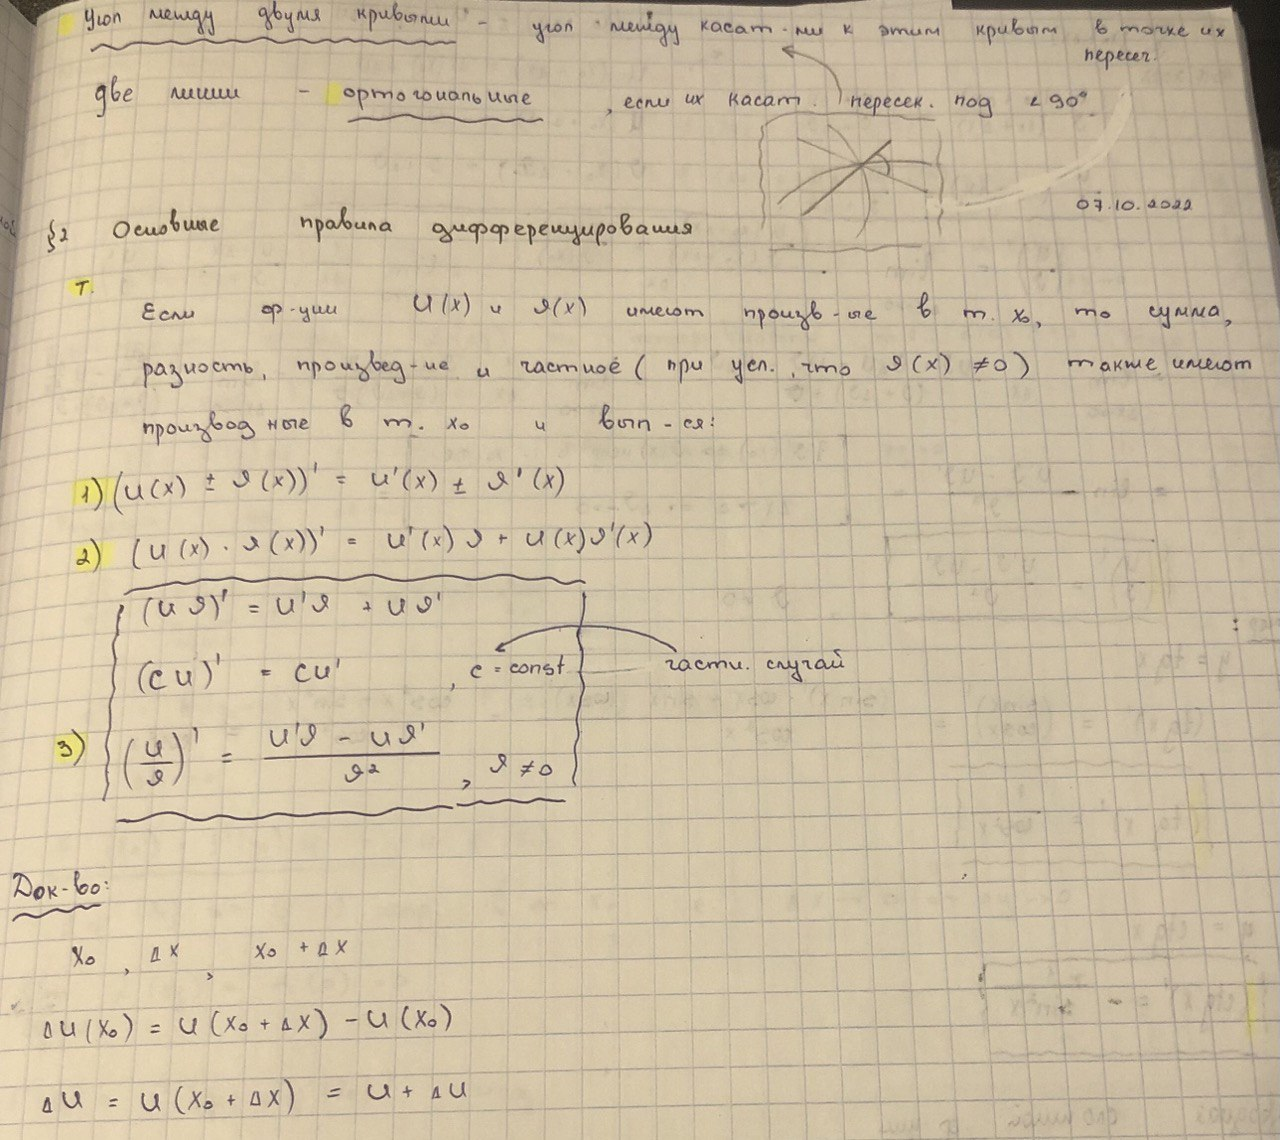 Угол между двумя кривыми - угол между касат-ми к этим кривым в точке их
пересеч.
две линии - ортогональные, если их касат. пересек. под ∠90°
07.10.2022
§2 Основные правила дифференцирования
Т.
Если ф-ции U(x) и v(x) имеют произв-ые в т. x₀, то сумма,
разность, произвед-ие и частноё (при усл., что v(x) ≠0) также имеют
производные в т. x₀ и вып-ся:
1) (u(x) ± v(x))' = u'(x) ± v'(x)
2) (u(x) · v(x))' = u'(x)v + u(x)v'(x)
(uv)' = u'v + uv'
(cu)' = cu', c = const частн. случай
3) (u/v)' = (u'v - uv')/v², v ≠ 0
Док-во:
x₀, Δx, x₀ + Δx
Δu(x₀) = u(x₀ + Δx) - u(x₀)
Δu = u(x₀ + Δx) = u + Δu